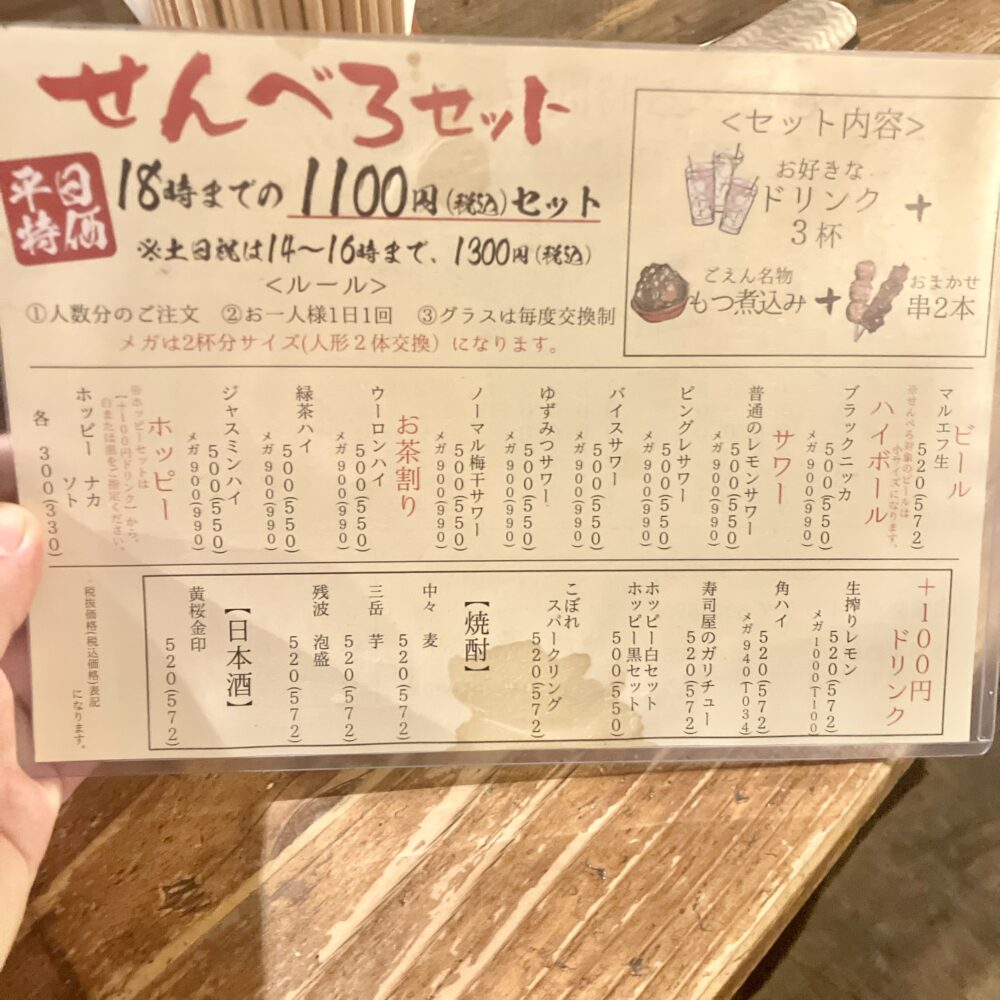 せんべろセット
平日特価
18時までの1100円(税込)セット
※土日祝は14～16時まで、1300円(税込)
＜ルール＞
①人数分のご注文 ②お一人様1日1回 ③グラスは毎度交換制
メガは2杯分サイズ(人形2体交換）になります。
＜セット内容＞
お好きな
ドリンク
3杯
＋
ごえん名物
もつ煮込み
＋
おまかせ
串2本
ビール
マルエフ生
520(572)
※せんべろ対象のビールは
小サイズになります。
ハイボール
ブラックニッカ
500(550)
メガ 900(990)
サワー
普通のレモンサワー
500(550)
メガ 900(990)
ピングレサワー
500(550)
メガ 900(990)
バイスサワー
500(550)
メガ 900(990)
ゆずみつサワー
500(550)
メガ 900(990)
ノーマル梅干サワー
500(550)
メガ 900(990)
お茶割り
ウーロンハイ
500(550)
メガ 900(990)
緑茶ハイ
500(550)
メガ 900(990)
ジャスミンハイ
500(550)
メガ 900(990)
ホッピー
※ホッピーセットは
【+100円ドリンク】から、
白または黒をご指定ください。
ホッピー ナカ
ソト
各 300(330)
＋100円
ドリンク
生搾りレモン
520(572)
メガ 1000(1100)
角ハイ
520(572)
メガ 940(1034)
寿司屋のガリチュー
520(572)
ホッピー白セット
ホッピー黒セット
500(550)
こぼれ
スパークリング
520(572)
【焼酎】
中々 麦
520(572)
三岳 芋
520(572)
残波 泡盛
520(572)
【日本酒】
黄桜金印
520(572)
税抜価格(税込価格)表記
になります。